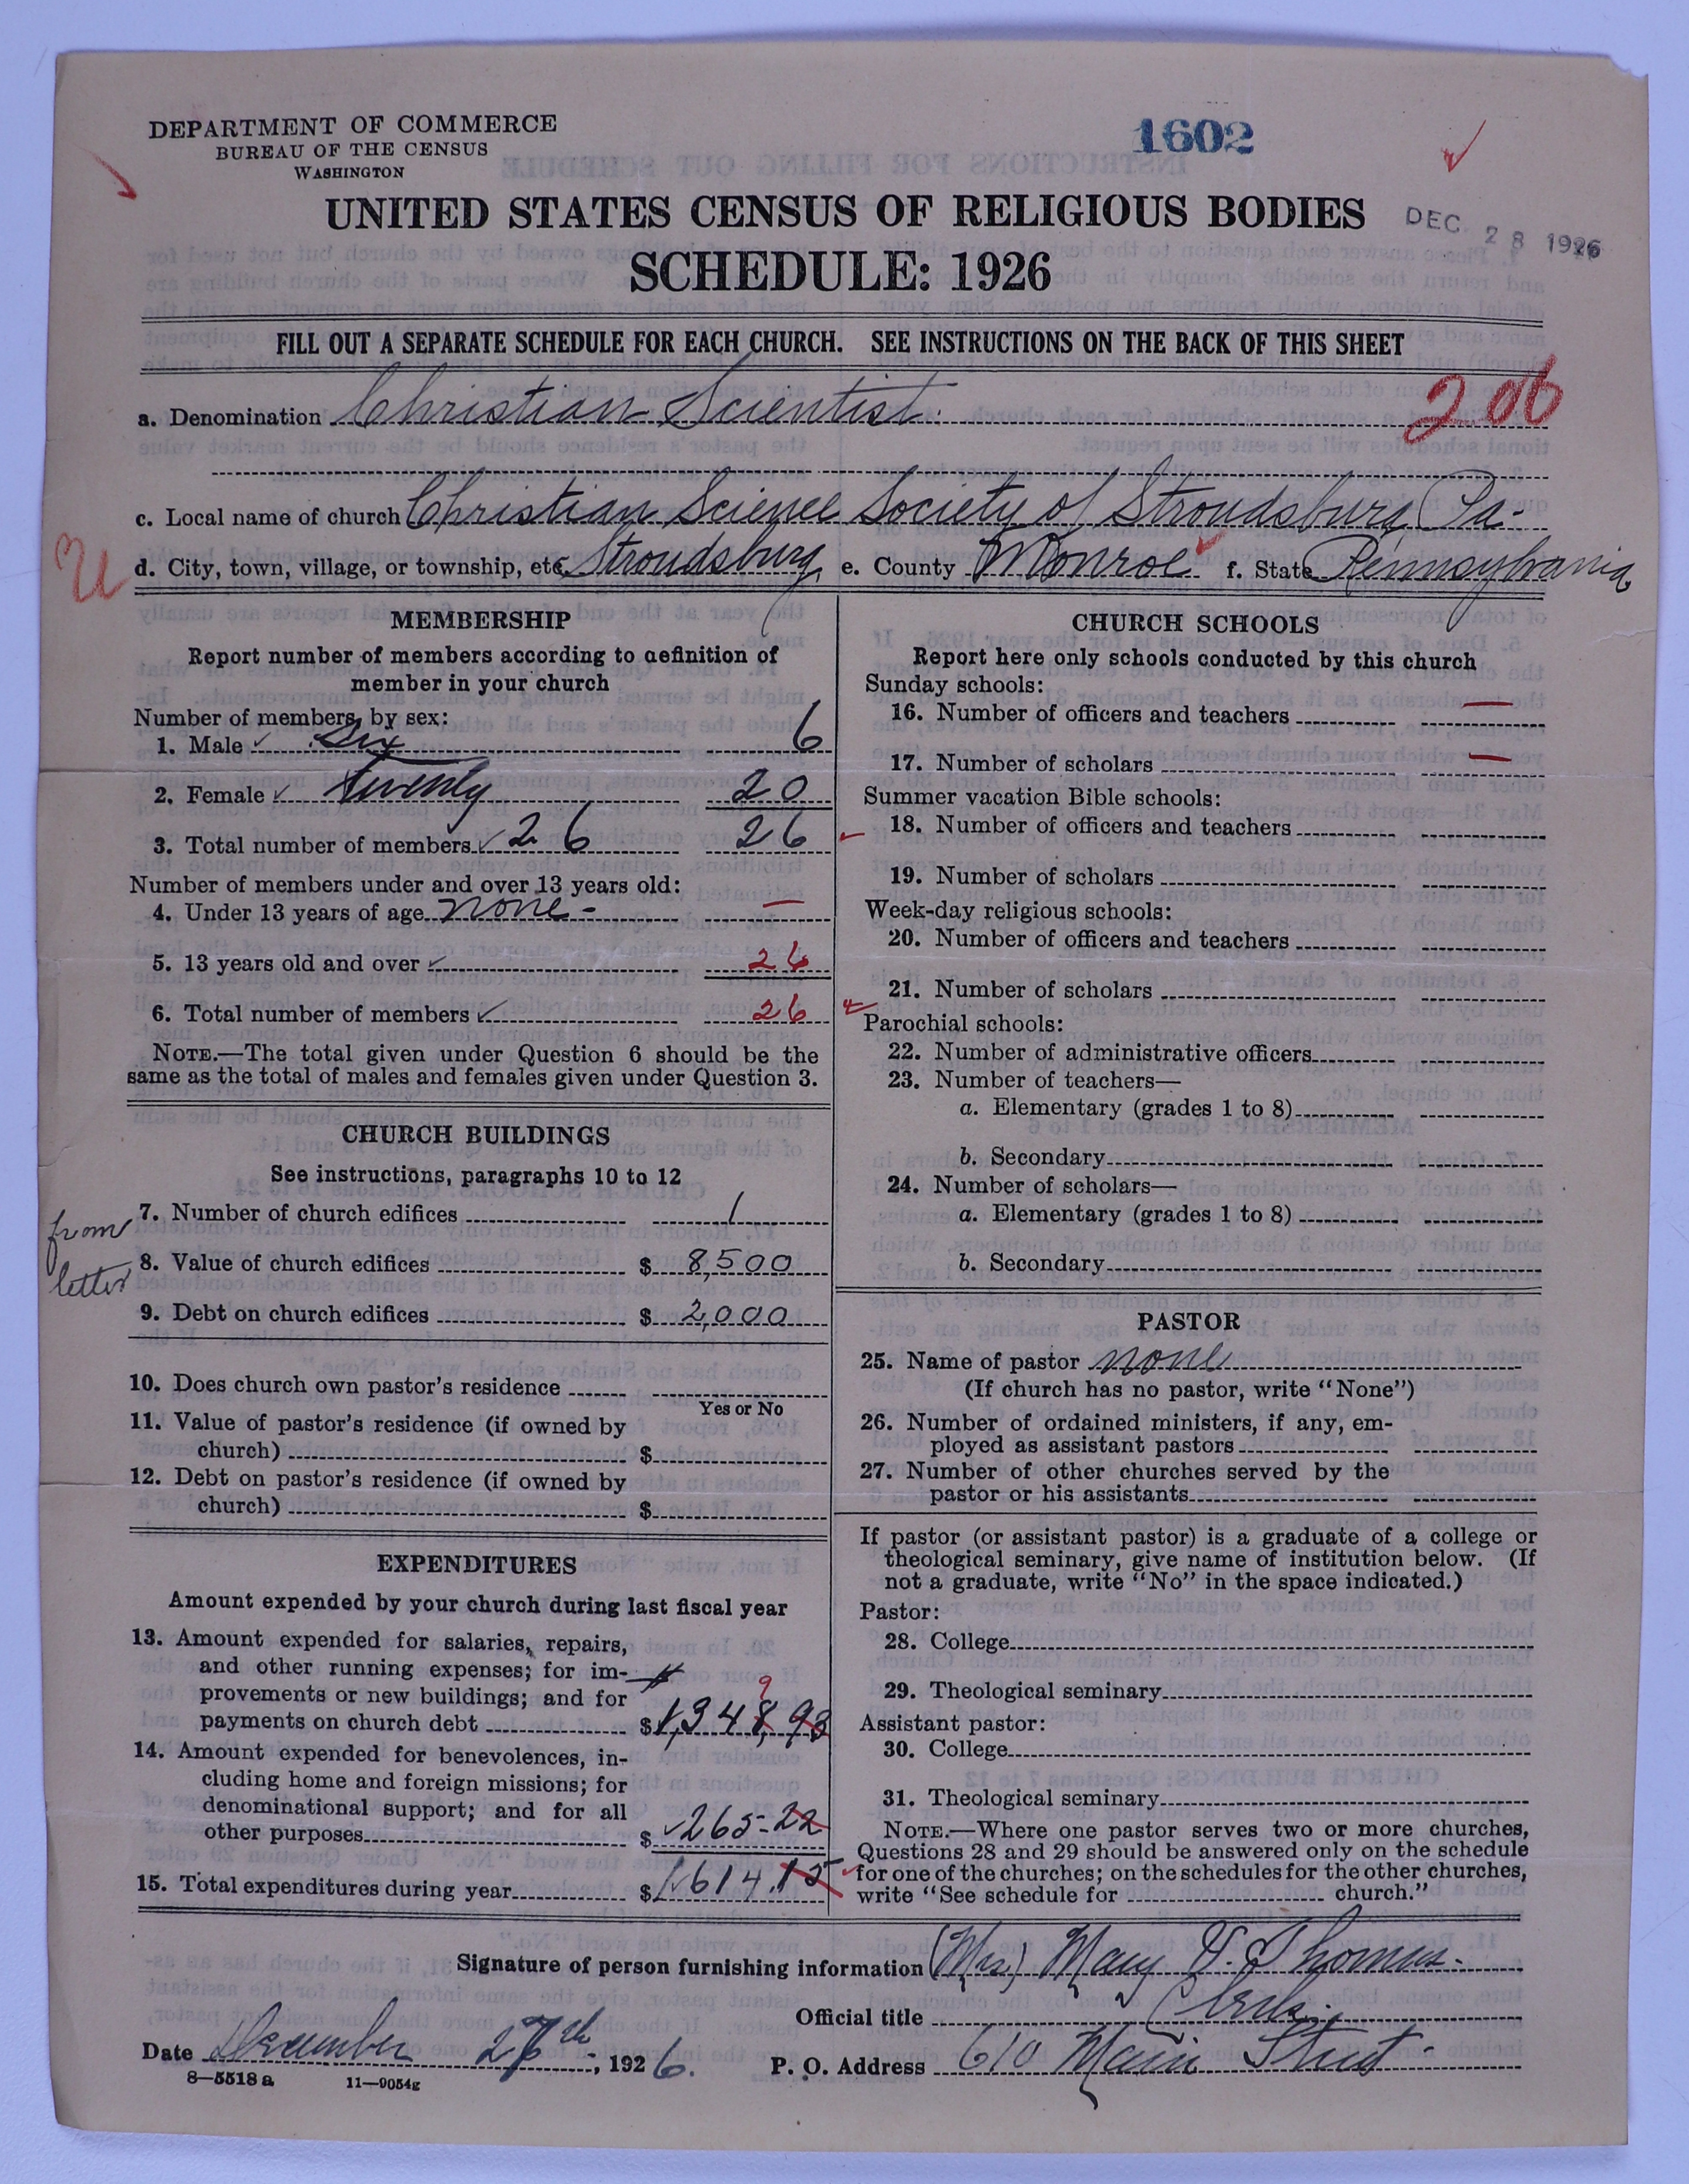 DEPARTMENT OF COMMERCE
BUREAU OF THE CENSUS
WASHINGTON
1602
UNITED STATES CENSUS OF RELIGIOUS BODIES
DEC 28 1926
SCHEDULE: 1926
FILL OUT A SEPARATE SCHEDULE FOR EACH CHURCH. SEE INSTRUCTIONS ON THE BACK OF THIS SHEET
a. Denomination Christian Scientist. 206
c. Local name of church Christian Science Society of Stroudsburg, Pa.
d. City, town, village, or township, etc. Stroudsburg e. County Monroe f. State Pennsylvania
MEMBERSHIP
Report number of members according to definition of
member in your church
Number of members, by sex:
1. Male Six 6
2. Female Twenty 20
3. Total number of members 26 26
Number of members under and over 13 years old:
4. Under 13 years of age none - —
5. 13 years old and over 26
6. Total number of members 26
NOTE.—The total given under Question 6 should be the
same as the total of males and females given under Question 3.
CHURCH BUILDINGS
See instructions, paragraphs 10 to 12
from
letter
7. Number of church edifices 1
8. Value of church edifices $ 8,500
9. Debt on church edifices $ 2,000
10. Does church own pastor's residence
Yes or No
11. Value of pastor's residence (if owned by
church) $
12. Debt on pastor's residence (if owned by
church) $
EXPENDITURES
Amount expended by your church during last fiscal year
13. Amount expended for salaries, repairs,
and other running expenses; for im-
provements or new buildings; and for 9
payments on church debt $ 1,348,93
14. Amount expended for benevolences, in-
cluding home and foreign missions; for
denominational support; and for all
other purposes $ 265-22
15. Total expenditures during year $ 1,614.15
CHURCH SCHOOLS
Report here only schools conducted by this church
Sunday schools:
16. Number of officers and teachers —
17. Number of scholars —
Summer vacation Bible schools:
18. Number of officers and teachers
19. Number of scholars
Week-day religious schools:
20. Number of officers and teachers
21. Number of scholars
Parochial schools:
22. Number of administrative officers
23. Number of teachers—
a. Elementary (grades 1 to 8)
b. Secondary
24. Number of scholars—
a. Elementary (grades 1 to 8)
b. Secondary
PASTOR
25. Name of pastor none
(If church has no pastor, write "None")
26. Number of ordained ministers, if any, em-
ployed as assistant pastors
27. Number of other churches served by the
pastor or his assistants
If pastor (or assistant pastor) is a graduate of a college or
theological seminary, give name of institution below. (If
not a graduate, write "No" in the space indicated.)
Pastor:
28. College
29. Theological seminary
Assistant pastor:
30. College
31. Theological seminary
NOTE.—Where one pastor serves two or more churches,
Questions 28 and 29 should be answered only on the schedule
for one of the churches; on the schedules for the other churches,
write "See schedule for church."
Signature of person furnishing information (Mrs.) Mary V. Thomas.
Official title Clerk.
Date December 27th, 1926.
P. O. Address 610 Main Street.
8—5518 a 11—9054g